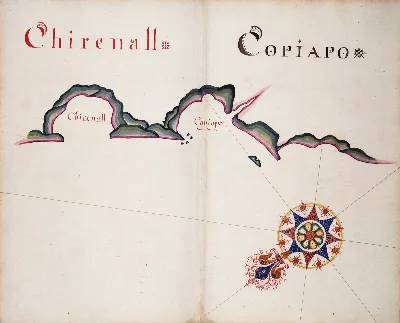 Chirenall
Copiapo
Chirenall
Copiapo